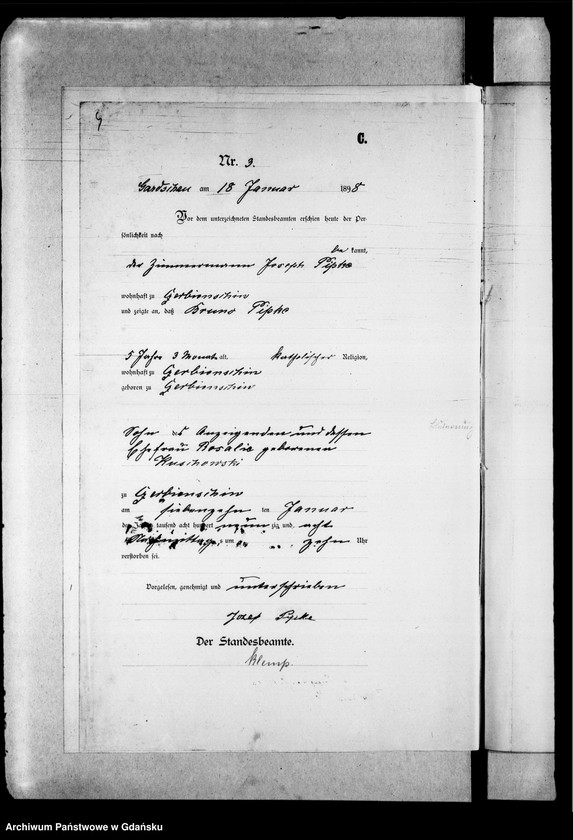 C.
Nr. 3.
Gardschau am 18 Januar 1898
Vor dem unterzeichneten Standesbeamten erschien heute der Per-
sönlichkeit nach
be kannt,
der Zimmermann Joseph Pipke
wohnhaft zu Gerbienschin
und zeigte an, daß Bruno Pipke
5 Jahre 3 Monate alt, katholischer Religion,
wohnhaft zu Gerbienschin
geboren zu Gerbienschin
Sohn des Anzeigenden und dessen
Ehefrau Rosalie geborenen
zu Gerbienschin
am siebenzehn ten Januar
des Jahres tausend acht hundert neun zig und acht
Nachmittags um zehn Uhr
verstorben sei.
Vorgelesen, genehmigt und unterschrieben
Jozef Pipke
Der Standesbeamte.
Klemp.
Archiwum Państwowe w Gdańsku